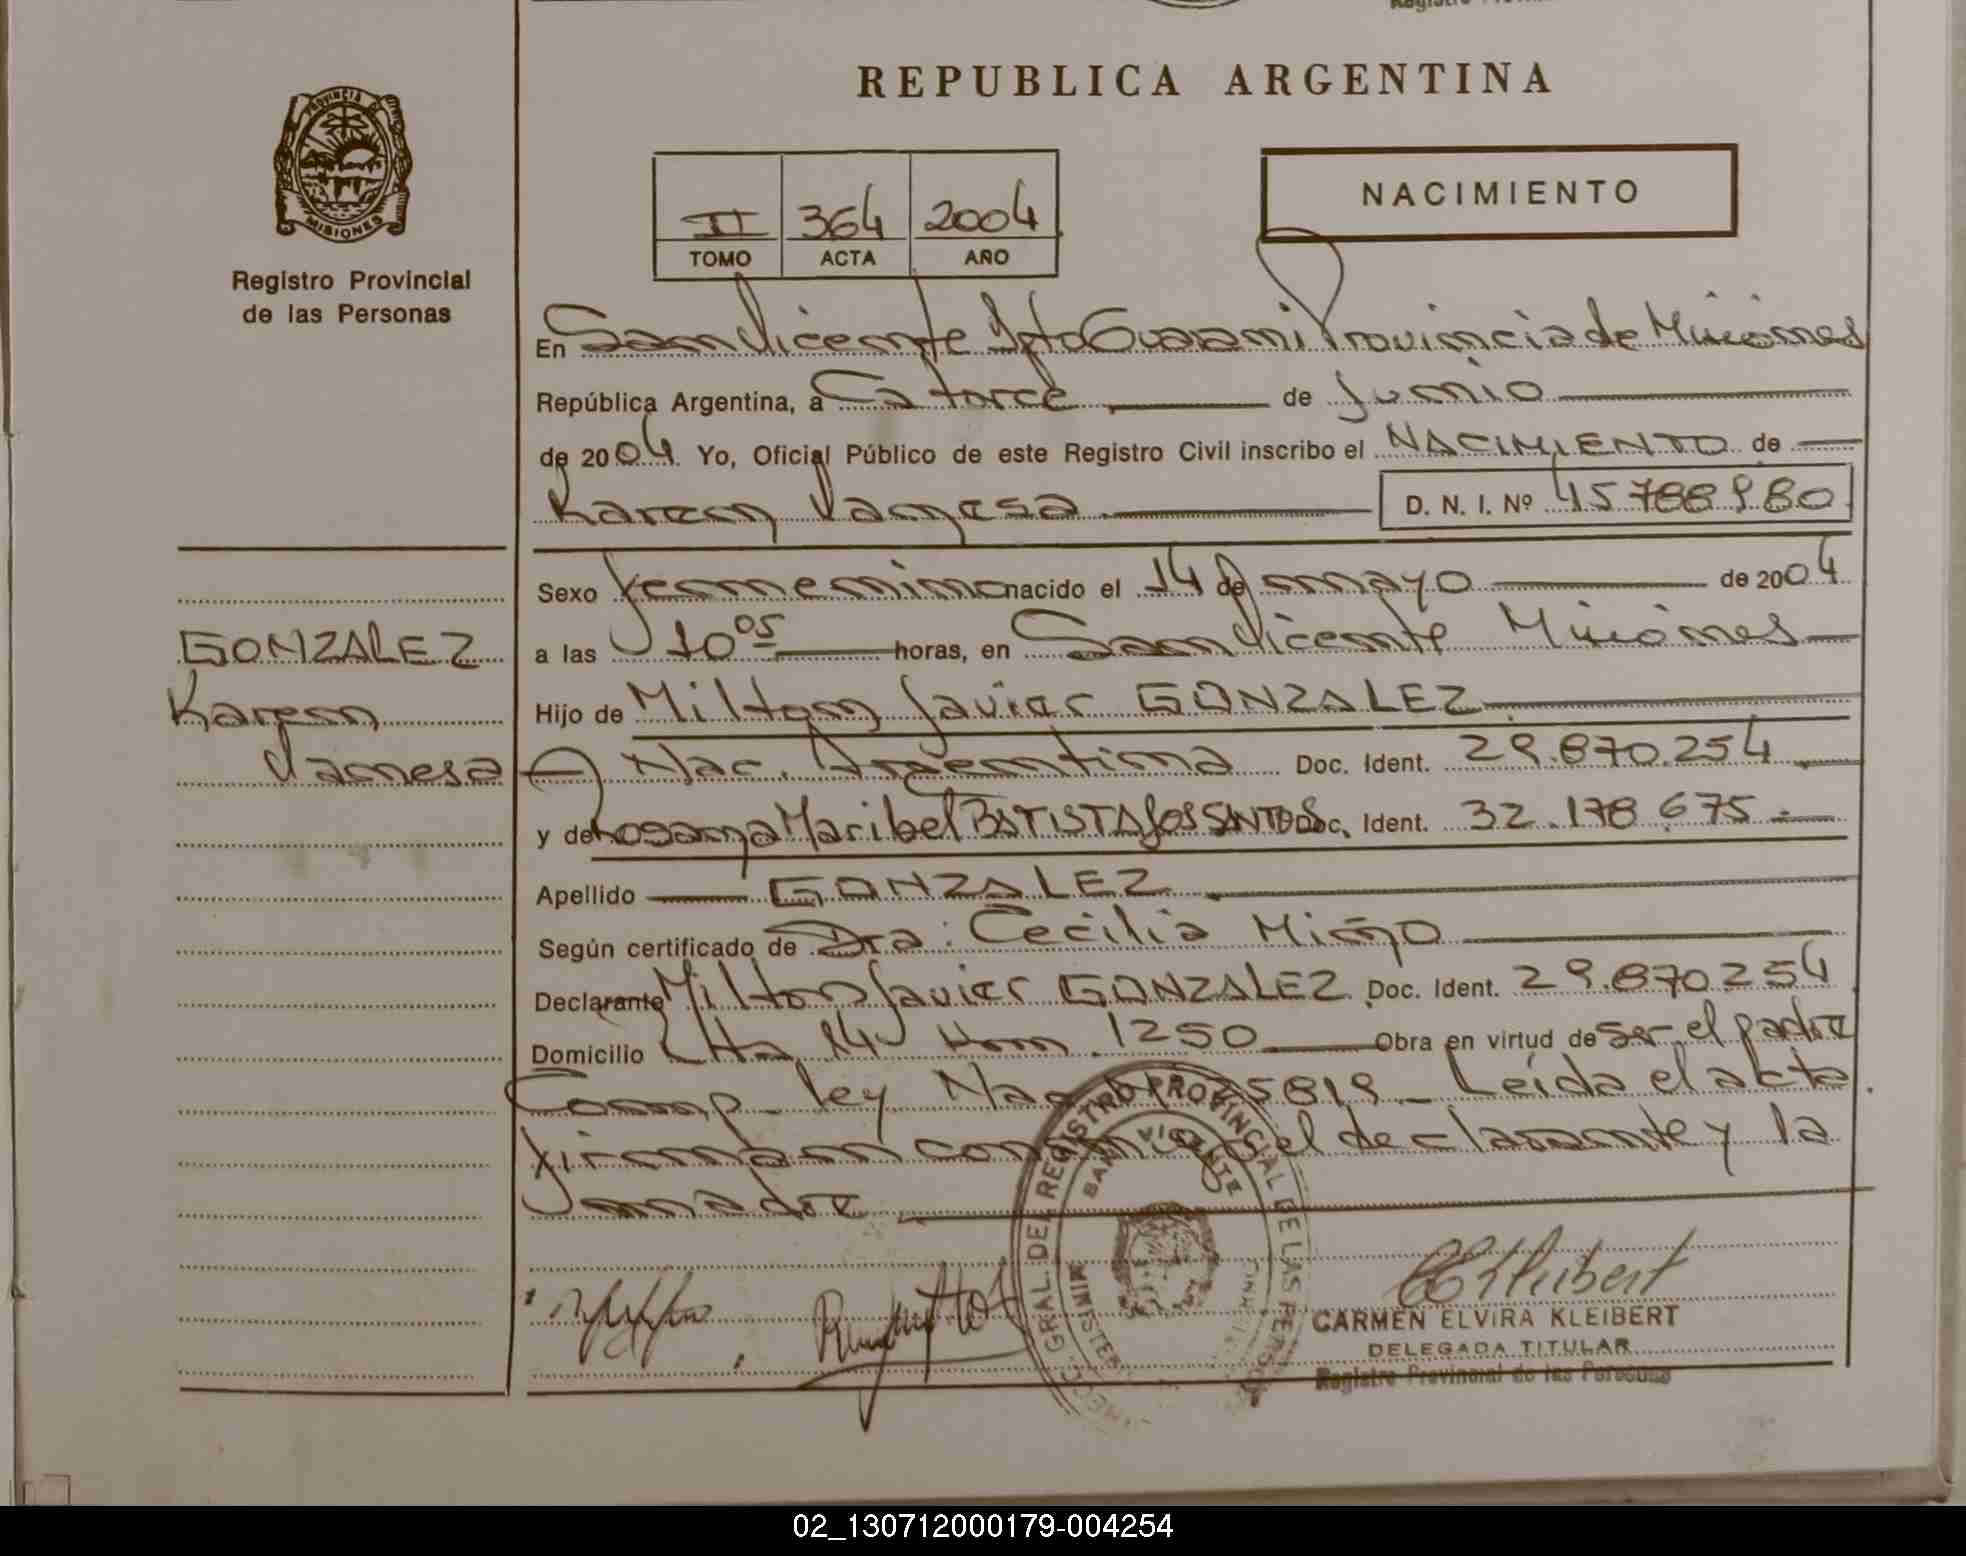 REPUBLICA ARGENTINA
PROVINCIA DE
MISIONES
Registro Provincial
de las Personas
II 364 2004
TOMO ACTA AÑO
NACIMIENTO
En San Vicente Dpto Guarani Provincia de Misiones
República Argentina, a Catorce de Junio
de 2004 Yo, Oficial Público de este Registro Civil inscribo el NACIMIENTO de
Karen Vanesa D. N. I. Nº 45788980
Sexo femenino nacido el 14 de mayo de 2004
a las 10 05 horas, en San Vicente Misiones
Hijo de Milton Javier GONZALEZ
Nac. Argentina Doc. Ident. 29.870.254
y de Rosana Maribel BATISTA dos SANTOS Doc. Ident. 32.178.675
Apellido GONZALEZ
Según certificado de Dra: Cecilia Miño
Declarante Milton Javier GONZALEZ Doc. Ident. 29.870.254
Domicilio 1250 Obra en virtud de ser el padre
Comp. ley Nac 25819 Leída el acta
firman conmigo el declarante y la
madre
GONZALEZ
Karen
Vanesa
GRAL. DEL REGISTRO PROVINCIAL DE LAS PERSON
SAN VICENTE
CARMEN ELVIRA KLEIBERT
DELEGADA TITULAR
Registro Provincial de las Personas
02_130712000179-004254